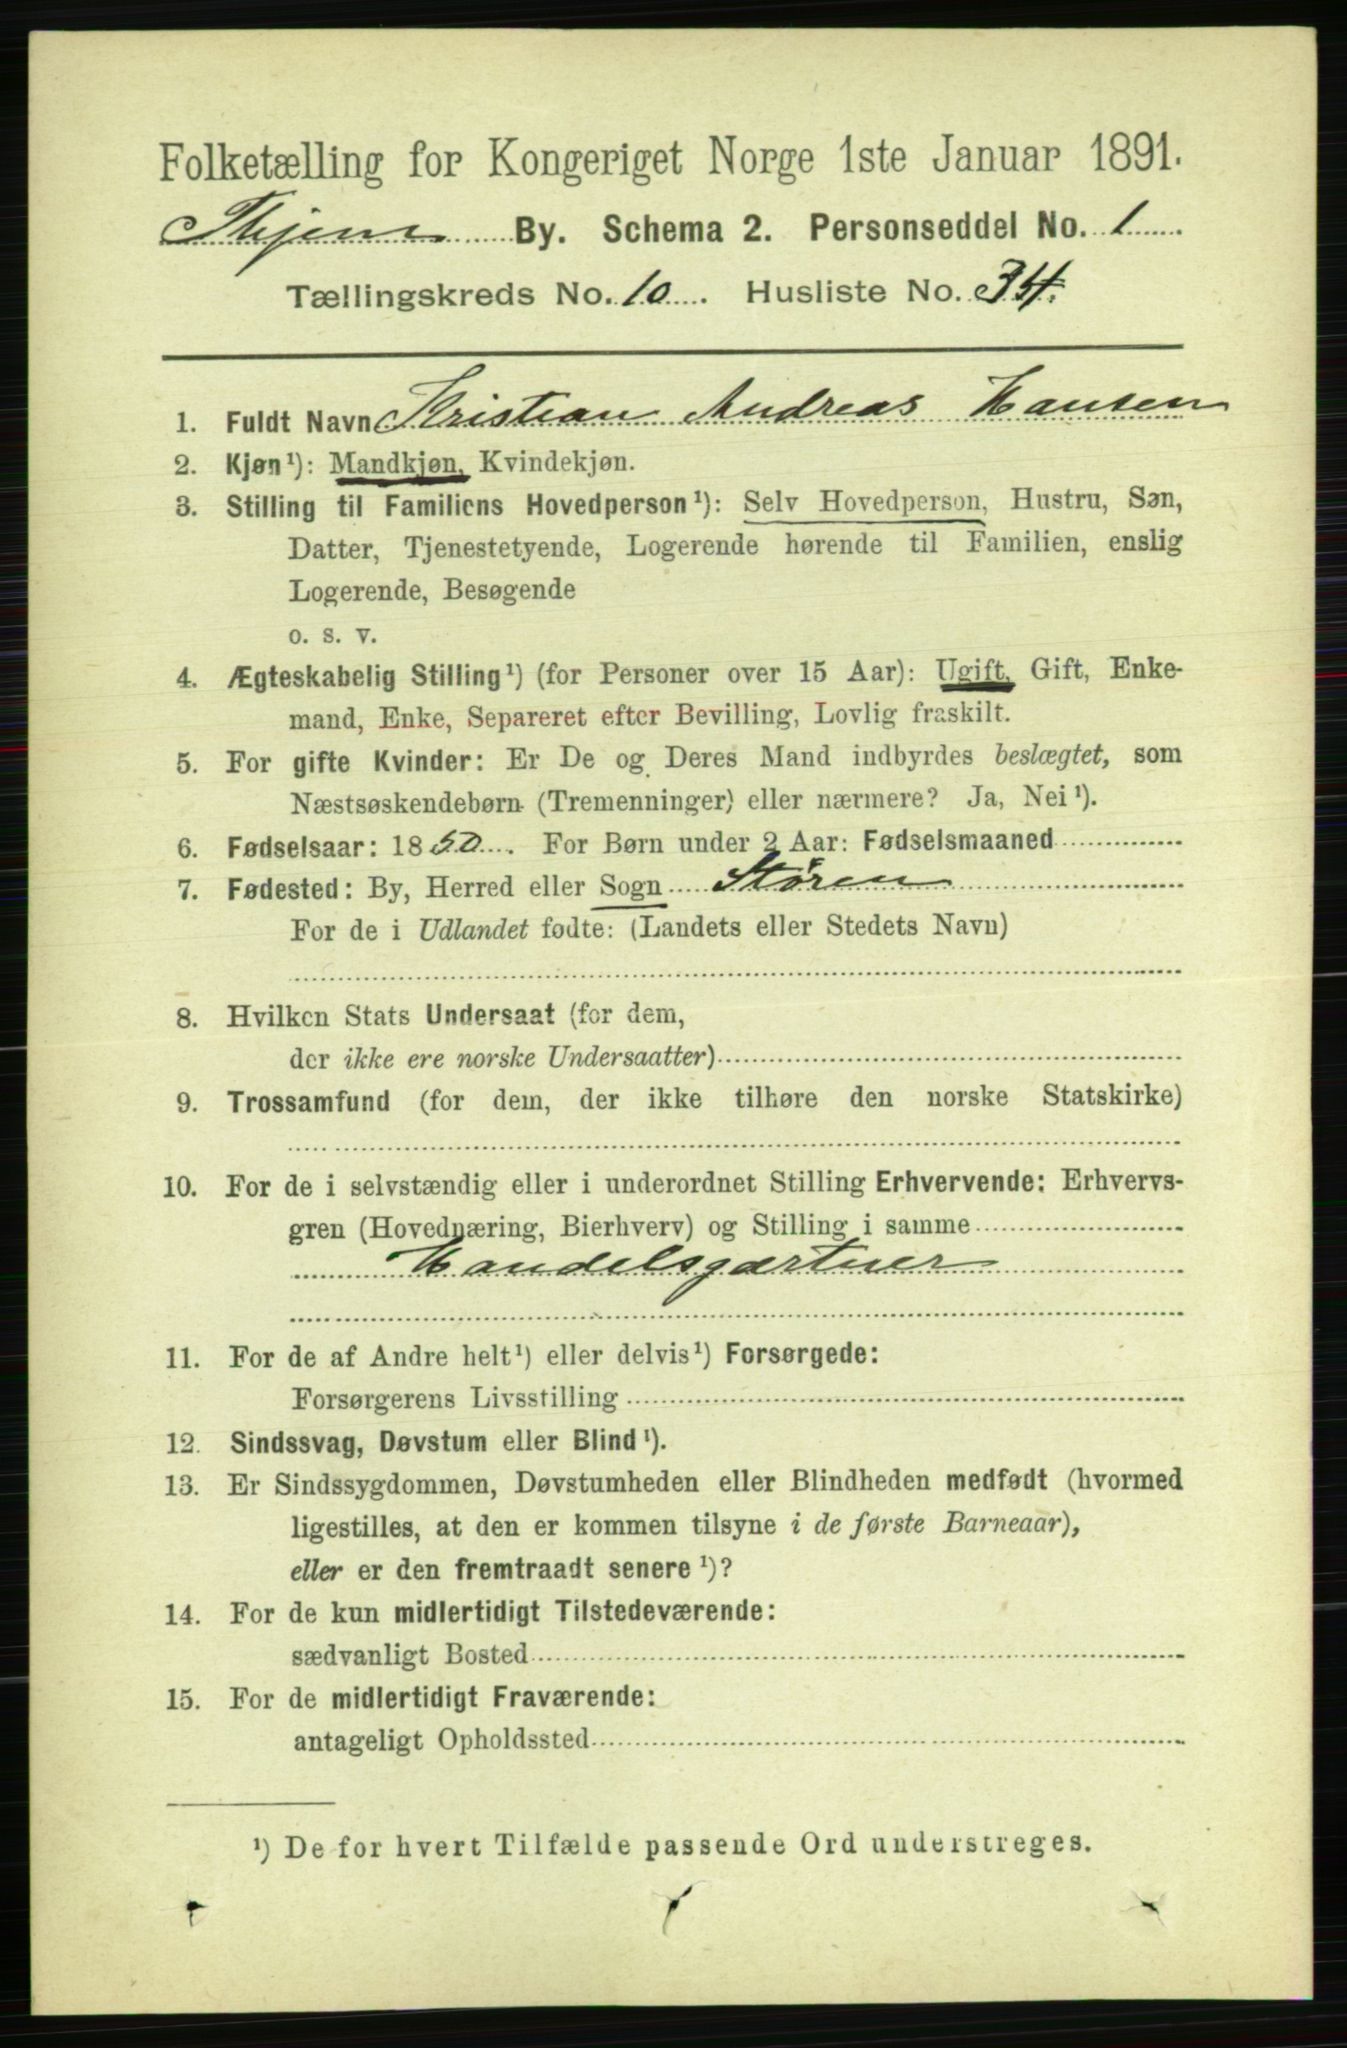 Folketælling for Kongeriget Norge 1ste Januar 1891.
Thjem By. Schema 2. Personseddel No. 1
Tællingskreds No. 10. Husliste No. 34.
1. Fuldt Navn Kristian Andreas Hansen
2. Kjøn¹): Mandkjøn, Kvindekjøn.
3. Stilling til Familiens Hovedperson¹): Selv Hovedperson, Hustru, Søn,
Datter, Tjenestetyende, Logerende hørende til Familien, enslig
Logerende, Besøgende
o. s. v.
4. Ægteskabelig Stilling¹) (for Personer over 15 Aar): Ugift, Gift, Enke-
mand, Enke, Separeret efter Bevilling, Lovlig fraskilt.
5. For gifte Kvinder: Er De og Deres Mand indbyrdes beslægtet, som
Næstsøskendebørn (Tremenninger) eller nærmere? Ja, Nei¹).
6. Fødselsaar: 1850. For Børn under 2 Aar: Fødselsmaaned
7. Fødested: By, Herred eller Sogn Støren
For de i Udlandet fødte: (Landets eller Stedets Navn)
8. Hvilken Stats Undersaat (for dem,
der ikke ere norske Undersaatter)
9. Trossamfund (for dem, der ikke tilhøre den norske Statskirke)
10. For de i selvstændig eller i underordnet Stilling Erhvervende: Erhvervs-
gren (Hovednæring, Bierhverv) og Stilling i samme
Handelsgartner
11. For de af Andre helt¹) eller delvis¹) Forsørgede:
Forsørgerens Livsstilling
12. Sindssvag, Døvstum eller Blind¹).
13. Er Sindssygdommen, Døvstumheden eller Blindheden medfødt (hvormed
ligestilles, at den er kommen tilsyne i de første Barneaar),
eller er den fremtraadt senere¹)?
14. For de kun midlertidigt Tilstedeværende:
sædvanligt Bosted
15. For de midlertidigt Fraværende:
antageligt Opholdssted
¹) De for hvert Tilfælde passende Ord understreges.